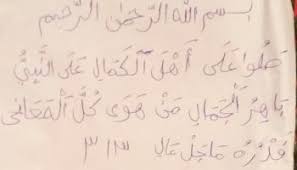 بسم الله الرَّحمٰن الرَّحيم
صَلُّوا عَلَى أَهْلِ الْكَمَالِ عَلَى النَّبِيُّ
بَاهِرُ الْجَمَالِ مَنْ هَوَى كُلَّ الْمَعَانِي
قَدْرُهُ مَا جَلَّ عَالِ ٣١٣